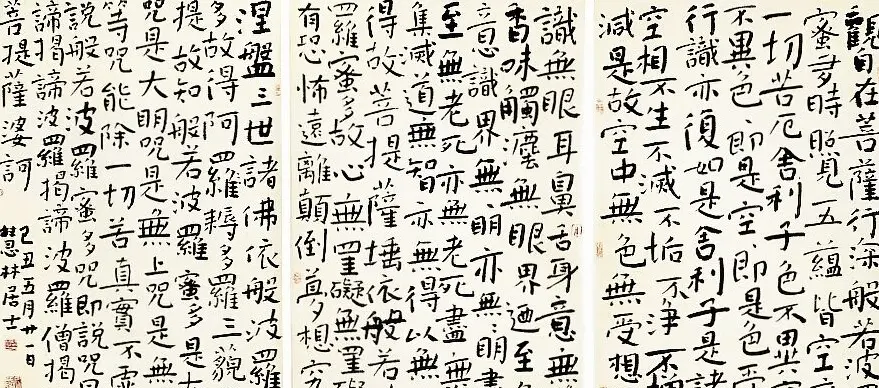 觀自在菩薩行深般若波
蜜多時照見五蘊皆空
一切苦厄舍利子色不異
不異色即是空即是色
行識亦復如是舍利子是諸
空相不生不滅不垢不淨不
減是故空中無色無受想
識無眼耳鼻舌身意無
香味觸灋無眼界迺至
意識界無明亦無明盡
至無老死亦無老死盡無
集滅道無智亦無得以無
得故菩提薩埵依般若
羅蜜多故心無罣礙無罣
有恐怖遠離顛倒夢想究
涅盤三世諸佛依般波羅
多故得阿羅耨多羅三藐
提故知般若波羅蜜多是大
咒是大明咒是無上咒是無
等咒能除一切苦真實不虛
說般若波羅蜜多咒即說咒曰
諦揭諦波羅揭諦波羅僧揭
菩提薩婆訶
己丑五月廿一日
林居士